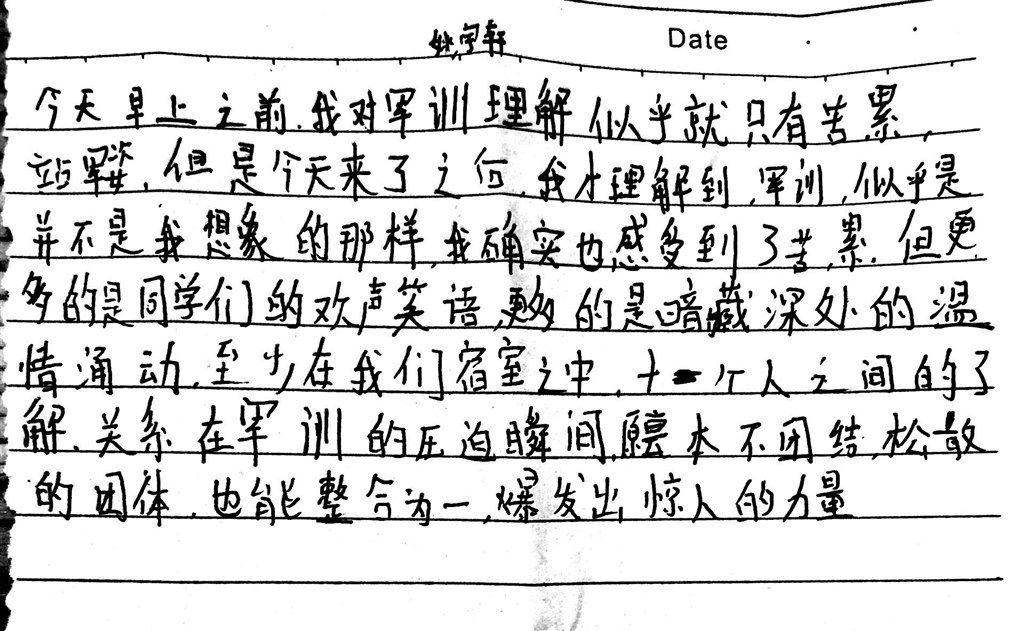 姚宇轩 Date
今天早上之前,我对军训理解似乎就只有苦累,
站军姿,但是今天来了之后,我才理解到,军训,似乎是
并不是我想象的那样,我确实也感受到了苦,累,但更
多的是同学们的欢声笑语,更多的是暗藏深处的温
情涌动,至少在我们宿室之中,十一个人之间的了
解、关系在军训的压迫瞬间,原本不团结,松散
的团体,也能整合为一,爆发出惊人的力量